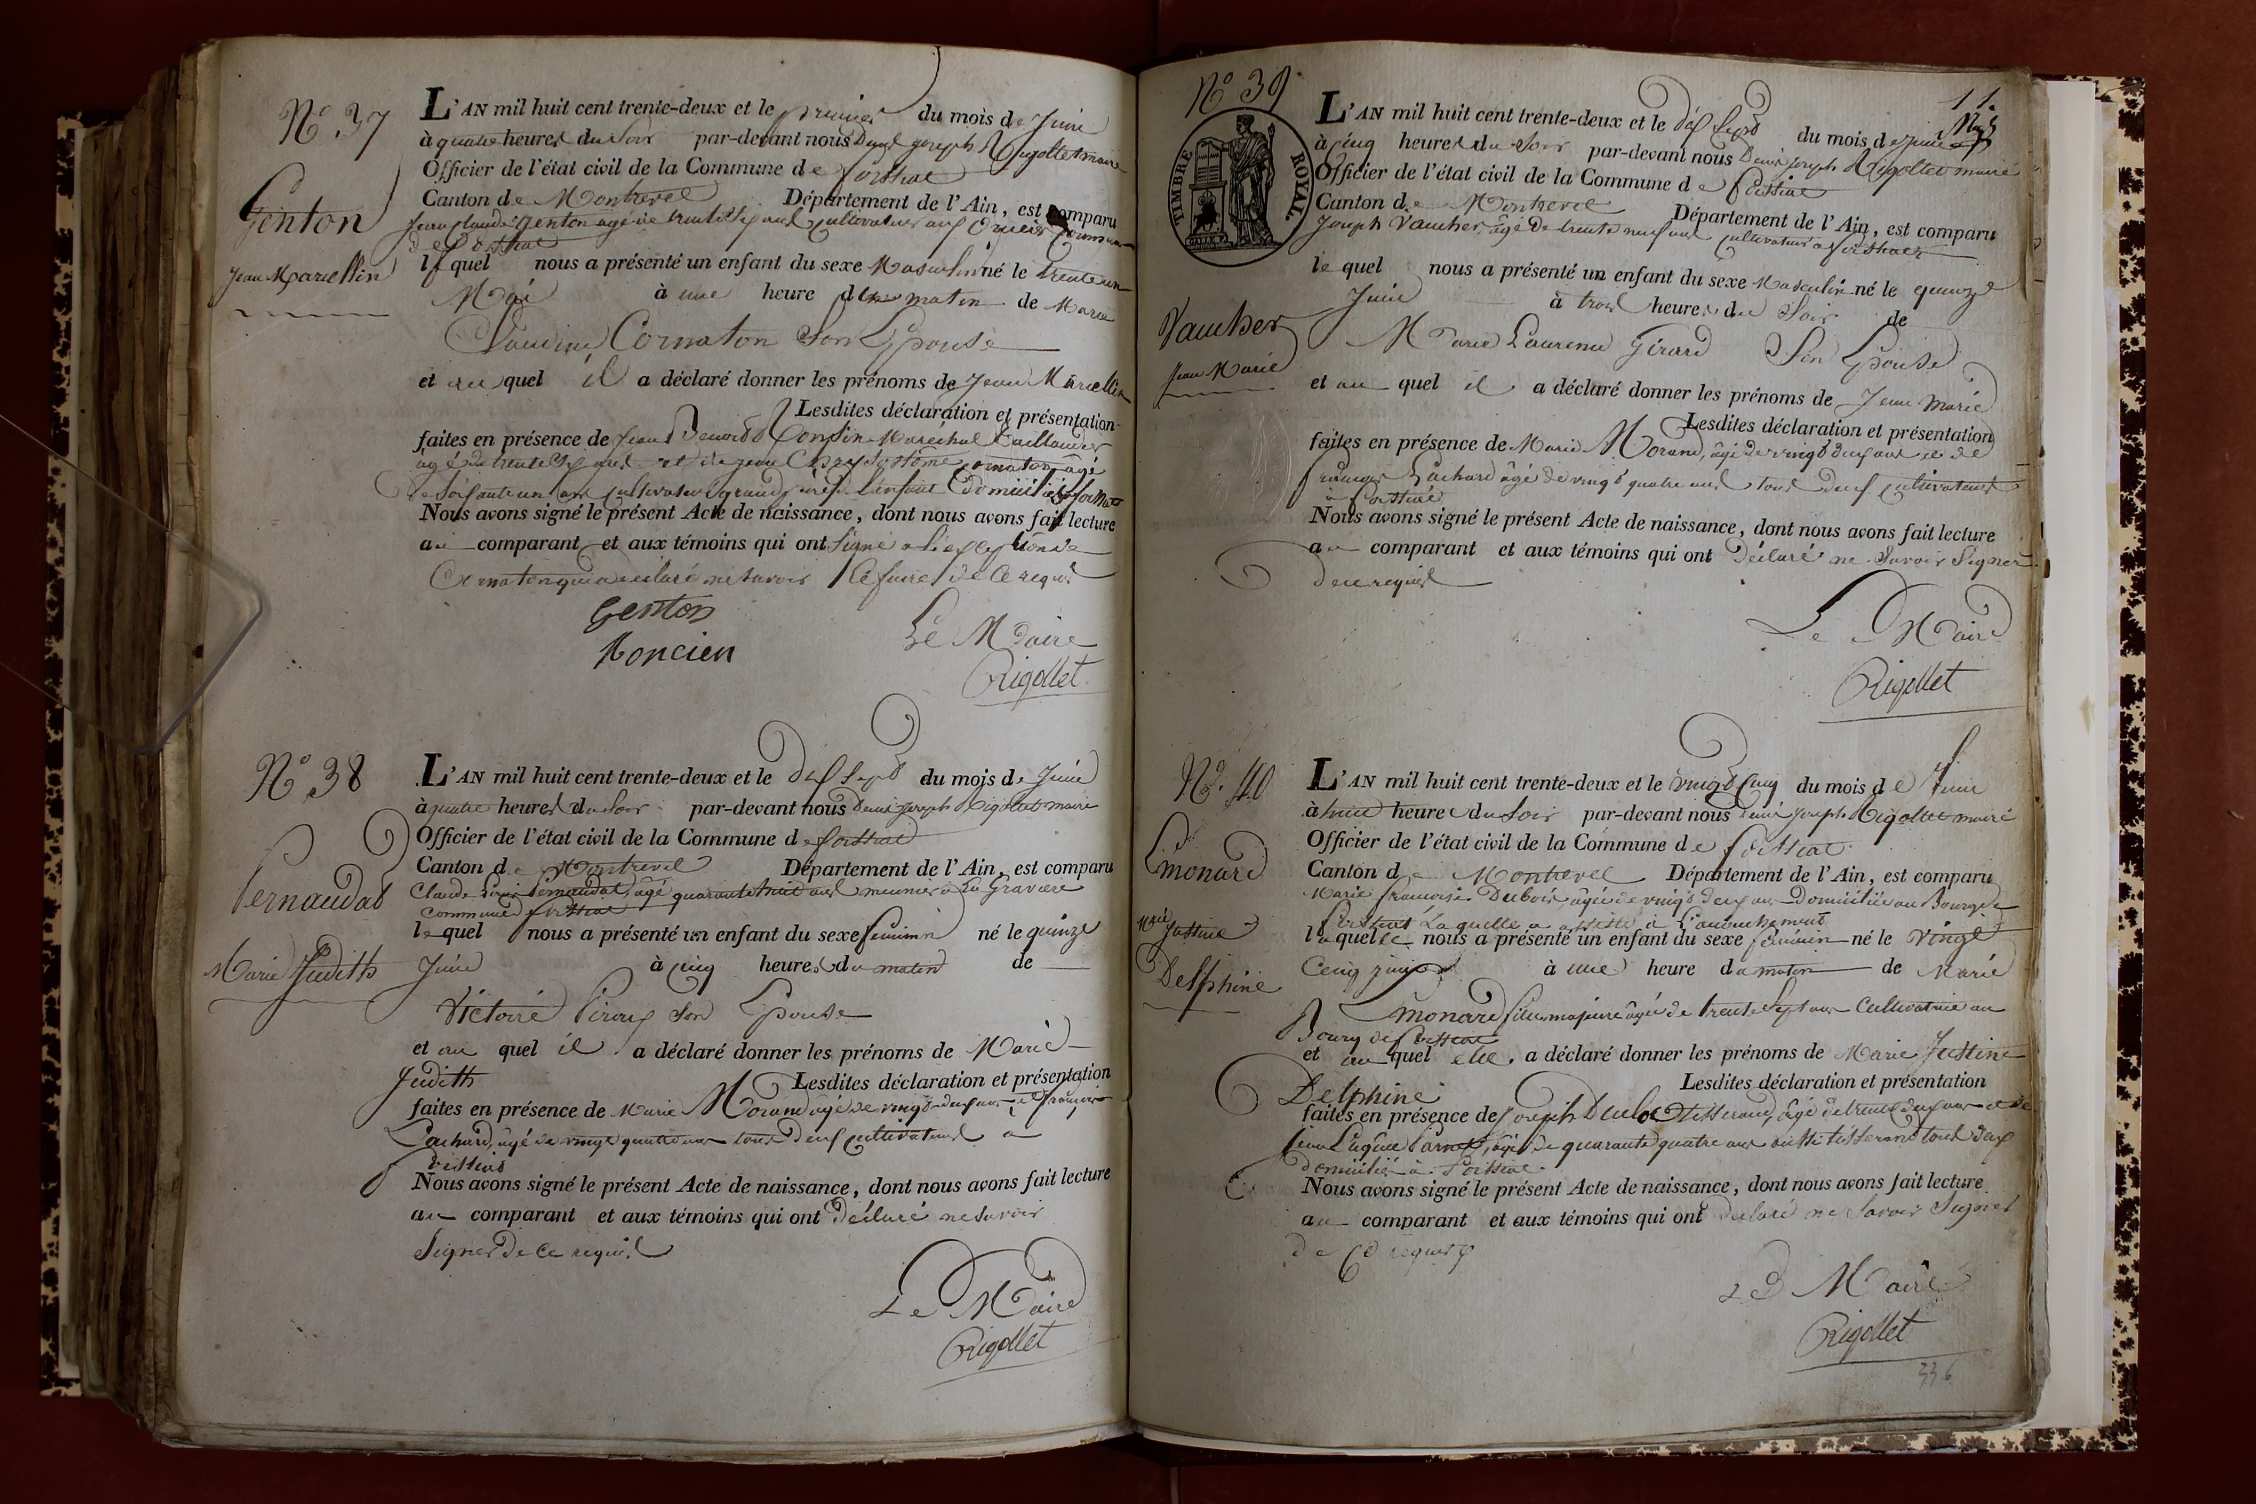 N° 37
Genton
Jean Marcellin
L'AN mil huit cent trente-deux et le premier du mois de Juin
à quatre heures du Soir par-devant nous Denis joseph Rigollet maire
Officier de l'état civil de la Commune de foissiat
Canton de Montrevel Département de l'Ain, est comparu
Jean claude Genton agé de trente six ans cultivateur aux commune
de foissiat
lequel nous a présenté un enfant du sexe Masculin né le trente un
Mai à une heure du matin de Marie
Claudine Cornaton Son Epouse
et au quel il a déclaré donner les prénoms de Jean Marcellin
Lesdites déclaration et présentation
faites en présence de Jean Benoit Maréchal Taillandier
agé de trente six ans et de jean Chrysostôme Cornaton âgé
de soixante un ans cultivateur grand père de l'enfant domiciliés à foissiat
Nous avons signé le présent Acte de naissance, dont nous avons fait lecture
au comparant et aux témoins qui ont Signé a l'exception de
Cornaton qui a déclaré ne savoir le faire de ce requis
Genton
Moncien
Le Maire
Rigollet
N° 38
Pernaudat
Marie Judith
L'AN mil huit cent trente-deux et le dix sept du mois de Juin
à quatre heures du Soir par-devant nous Denis joseph Rigollet maire
Officier de l'état civil de la Commune de foissiat
Canton de Montrevel Département de l'Ain, est comparu
Claude Pernaudat, âgé quarante huit ans meunier à La Gravière
commune de foissiat
lequel nous a présenté un enfant du sexe feminin né le quinze
Juin à cinq heures du matin de
Victoire Piroux Son Epouse
et au quel il a déclaré donner les prénoms de Marie
Judith Lesdites déclaration et présentation
faites en présence de Marie Morand âgé de vingt deux ans et de françois
Cachard, âgé de vingt quatre ans tous deux cultivateurs a
foissiat
Nous avons signé le présent Acte de naissance, dont nous avons fait lecture
au comparant et aux témoins qui ont déclaré ne savoir
Signer de ce requis
Le Maire
Rigollet
N° 39
11.
TIMBRE ROYAL.
Vaucher
Jean Marie
L'AN mil huit cent trente-deux et le dix Sept du mois de juin
à cinq heures du Soir par-devant nous Denis joseph Rigollet maire
Officier de l'état civil de la Commune de foissiat
Canton de Montrevel Département de l'Ain, est comparu
Joseph Vaucher, âgé de trente neuf ans cultivateur a foissiat
lequel nous a présenté un enfant du sexe Masculin né le quinze
Juin à trois heures du Soir de
Marie Laurence Girard Son Epouse
et au quel il a déclaré donner les prénoms de Jean Marie
Lesdites déclaration et présentation
faites en présence de Marie Morand, âgé de vingt deux ans et de
françois Cachard âgé de vingt quatre ans tous deux cultivateurs
a foissiat
Nous avons signé le présent Acte de naissance, dont nous avons fait lecture
au comparant et aux témoins qui ont déclaré ne Savoir Signer
de ce requis
Le Maire
Rigollet
N° 40
Emonard
Marie Justine
Delphine
L'AN mil huit cent trente-deux et le vingt cinq du mois de Juin
à huit heures du Soir par-devant nous Denis joseph Rigollet maire
Officier de l'état civil de la Commune de foissiat
Canton de Montrevel Département de l'Ain, est comparu
Marie francoise Dubois, âgée de vingt deux ans Domiciliée au Bourg de
foissiat Laquelle a assisté à L'accouchement
laquelle nous a présenté un enfant du sexe féminin né le vingt
Cinq juin à une heure du matin de Marie
Emonard fille majeure âgée de trente Sept ans Cultivatrice au
Bourg de foissiat
et au quel elle a déclaré donner les prénoms de Marie Justine
Delphine Lesdites déclaration et présentation
faites en présence de joseph tisserand, âgé de trente deux ans et de
jean Eugène âgé de quarante quatre ans aussi tisserand tous deux
domiciliés à foissiat
Nous avons signé le présent Acte de naissance, dont nous avons fait lecture
au comparant et aux témoins qui ont déclaré ne Savoir Signer
de ce requis
Le Maire
Rigollet
336